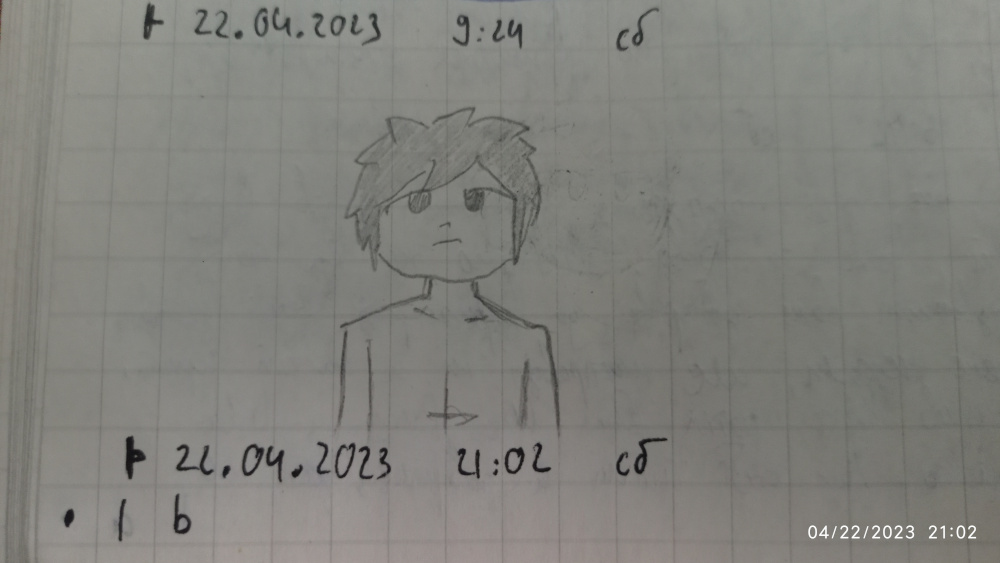 22.04.2023 9:24 сб
22.04.2023 21:02 сб
• 1 b
04/22/2023 21:02